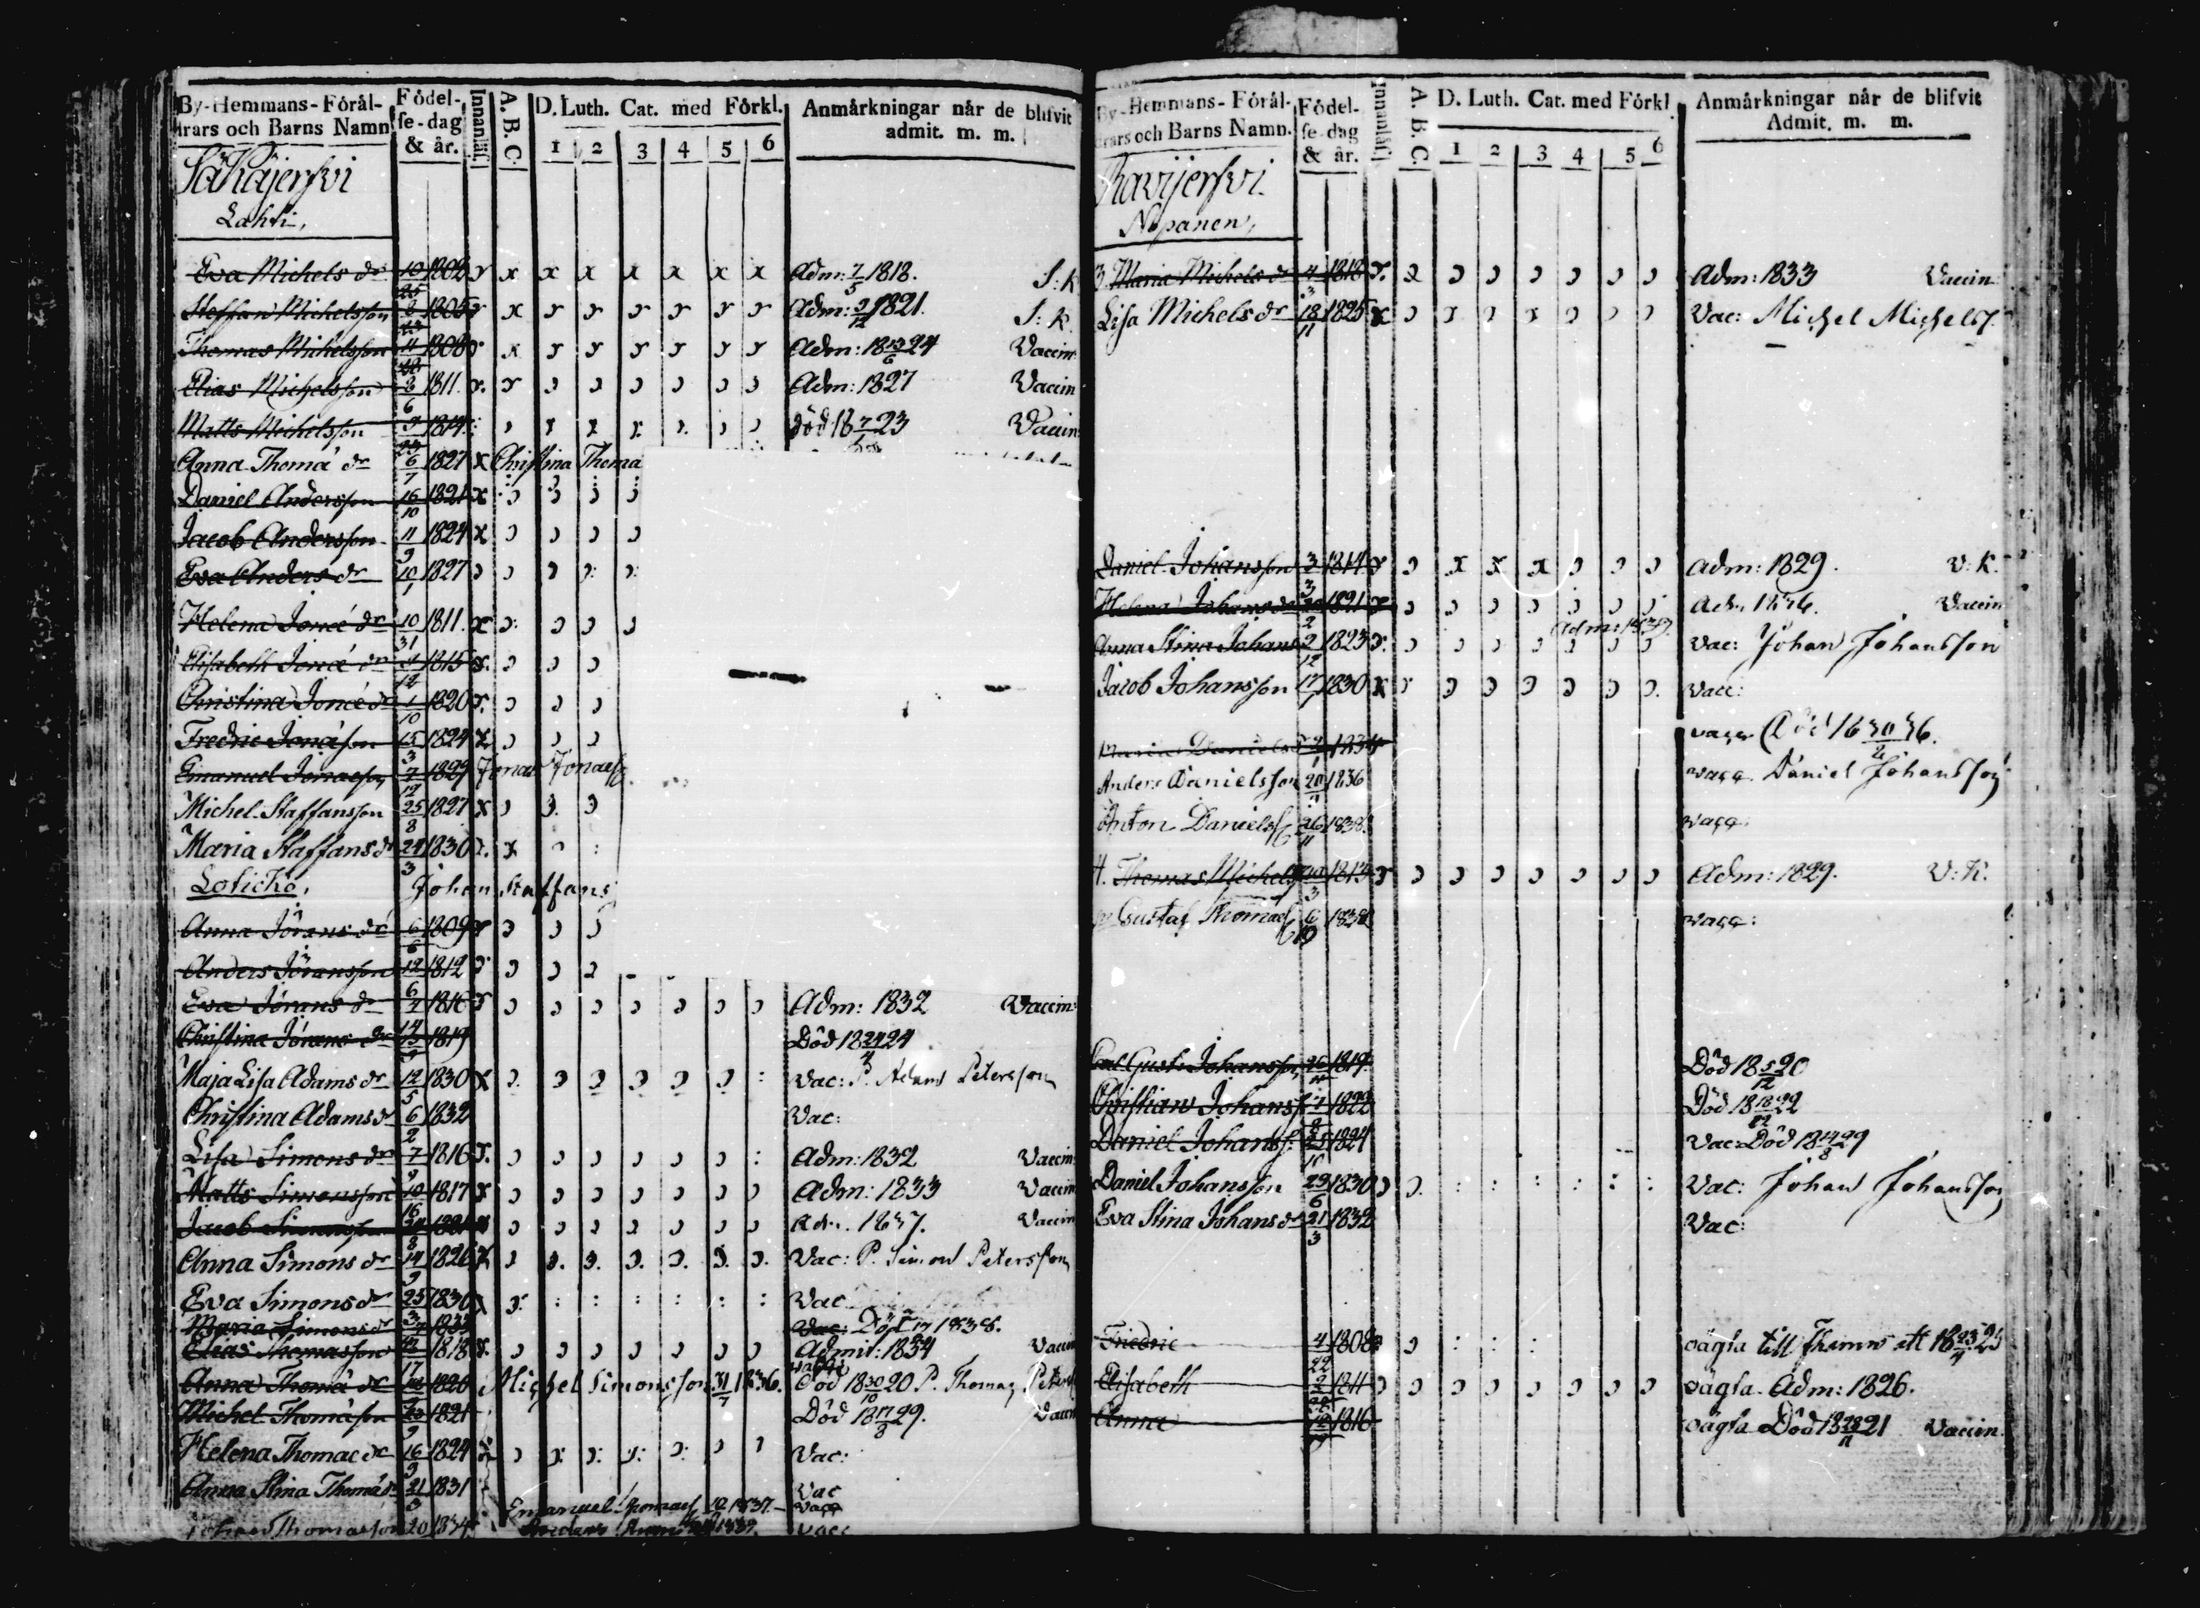 By-Hemmans-Förål-
drars och Barns Namn
Födel-
se-dag
& år.
Innanläs.
A. B. C.
D. Luth. Cat. med Förkl.
1 2 3 4 5 6
Anmärkningar når de blifvit
admit. m. m.
Säkäjerfvi
Lahti,
Eva Michels dr 10/25 1802 Adm: 7/5 1818. S: k
Steffan Michelsson 1805 Adm: 1821. S: k.
Thomas Michelsson 11 1808 Adm: 18 24 Vaccin:
Elias Michelsson 8/6 1811. Adm: 1827 Vaccin
Matts Michelsson 9 1814 död 18 7 23 Vaccin
Anna Thomæ dr 6/7 1827 Christina Thomæ
Daniel Andersson 16/10 1821
Jacob Andersson 11/9 1824
Eva Anders dr 10/1 1827
Helena Jonæ dr 10/31 1811.
Elisabeth Jonæ dr 1815
Christina Jonæ dr 1/10 1820
Fredric Jonæson 15/3 1824
Emanuel Jonæson 7/12 1829 Jonas Jonæs
Michel Staffansson 25/8 1827
Maria Staffans dr 24/3 1830
Loticko, Johan Staffans
Anna Jörans dr 6/6 1809
Anders Jöransson 12/6 1812
Eva Jörans dr 1816 Adm: 1832 Vaccin:
Christina Jörans dr 1819 Död 18 24/4 24
Maja Lisa Adams dr 12/5 1830 Vac: P. Adam Petersson
Christina Adams dr 6/2 1832 Vac:
Lisa Simons dr 7/9 1816 Adm: 1832 Vaccin
Matts Simonsson 10/16 1817 Adm: 1833 Vaccin
Jacob Simonsson 1821 Adm. 1837. Vaccin
Anna Simons dr 14/9 1826 Vac: P. Simon Petersson
Eva Simons dr 25/3 1830 Vac
Maria Simons dr 1833 Vac: Död 1838.
Elias Thomasson 1818 Admit: 1834 Vaccin
Anna Thomæ dr 1820 Michel Simonsson 31/7 1836. Död 18 30/10 20 P. Thomas Peters
Michel Thomæson 23/9 1821 Död 18 17/3 29. Vaccin
Helena Thomæ dr 16/9 1824 Vac:
Anna Stina Thomæ dr 21/3 1831 Vac
Emanuel Thomæs 1837. Vacc
Johan Thomasson 20 1834 1839. Vacc
By-Hemmans-Förål-
drars och Barns Namn.
Födel-
se-dag
& år.
Innanläs.
A. B. C.
D. Luth. Cat. med Förkl
1 2 3 4 5 6
Anmärkningar når de blifvit
Admit. m. m.
Ravijerfvi.
Nopanen,
3. Maria Michels dr 4/3 1818 Adm: 1833 Vaccin
Lisa Michels dr 18/11 1825 Vac: Michel Michelss.
Daniel Johansson 3/3 1814 Adm: 1829. V: K.
Helena Johans dr 1821 Adm 1836. Vaccin
Adm: 1839.
Anna Stina Johans 2/12 1823 Vac: Johan Johansson
Jacob Johansson 17/7 1830 Vacc:
Maria Daniels 1834 Vacc Död 18 30 36.
Anders Danielsson 20 1836 Vacc. Daniel Johansson
Anton Danielss 26/11 1838. Vacc.
4. Thomas Michelss 1813 Adm: 1829. V: K.
Gustaf Thomæs 6/10 1838 Vacc:
Carl Gust: Johansson 26 1819 Död 18 5/12 20
Christian Johanss 7 1822 Död 18 18/12 22
Daniel Johanss: 25 1824 Vac: Död 18 14/8 29
Daniel Johansson 29/6 1830 Vac: Johan Johansson
Eva Stina Johans dr 21/3 1832 Vac:
Fredric 4/22 1808 oägta till Thomæ
Elisabeth 1811 oägta. Adm: 1826.
Anna 1816 oägta Död 18 21 Vaccin